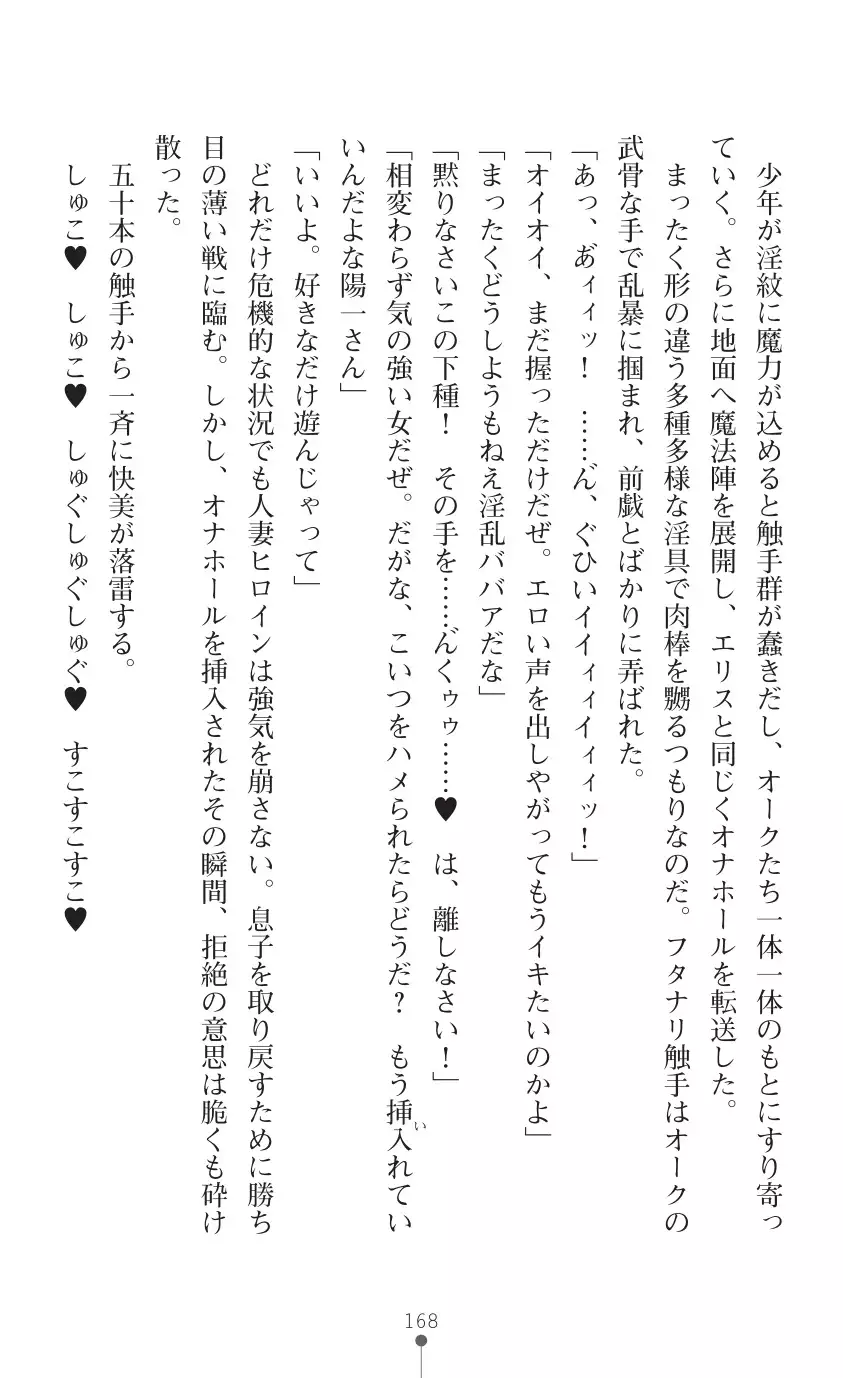 少年が淫紋に魔力が込めると触手群が蠢きだし、オークたち一体一体のもとにすり寄っ
ていく。さらに地面へ魔法陣を展開し、エリスと同じくオナホールを転送した。
まったく形の違う多種多様な淫具で肉棒を嬲るつもりなのだ。フタナリ触手はオークの
武骨な手で乱暴に掴まれ、前戯とばかりに弄ばれた。
「あっ、あ゙ィィッ！　……ん゙、ぐひいイイィィイィィッ！」
「オイオイ、まだ握っただけだぜ。エロい声を出しやがってもうイキたいのかよ」
「まったくどうしようもねえ淫乱ババアだな」
「黙りなさいこの下種！　その手を……ん゙くゥゥ……♥　は、離しなさい！」
「相変わらず気の強い女だぜ。だがな、こいつをハメられたらどうだ？　もう挿入れてい
い
いんだよな陽一さん」
「いいよ。好きなだけ遊んじゃって」
どれだけ危機的な状況でも人妻ヒロインは強気を崩さない。息子を取り戻すために勝ち
目の薄い戦に臨む。しかし、オナホールを挿入されたその瞬間、拒絶の意思は脆くも砕け
散った。
五十本の触手から一斉に快美が落雷する。
しゅこ♥　しゅこ♥　しゅぐしゅぐしゅぐ♥　すこすこすこ♥
168